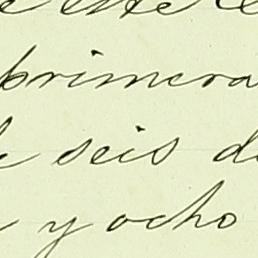 este
primera
seis de
y ocho